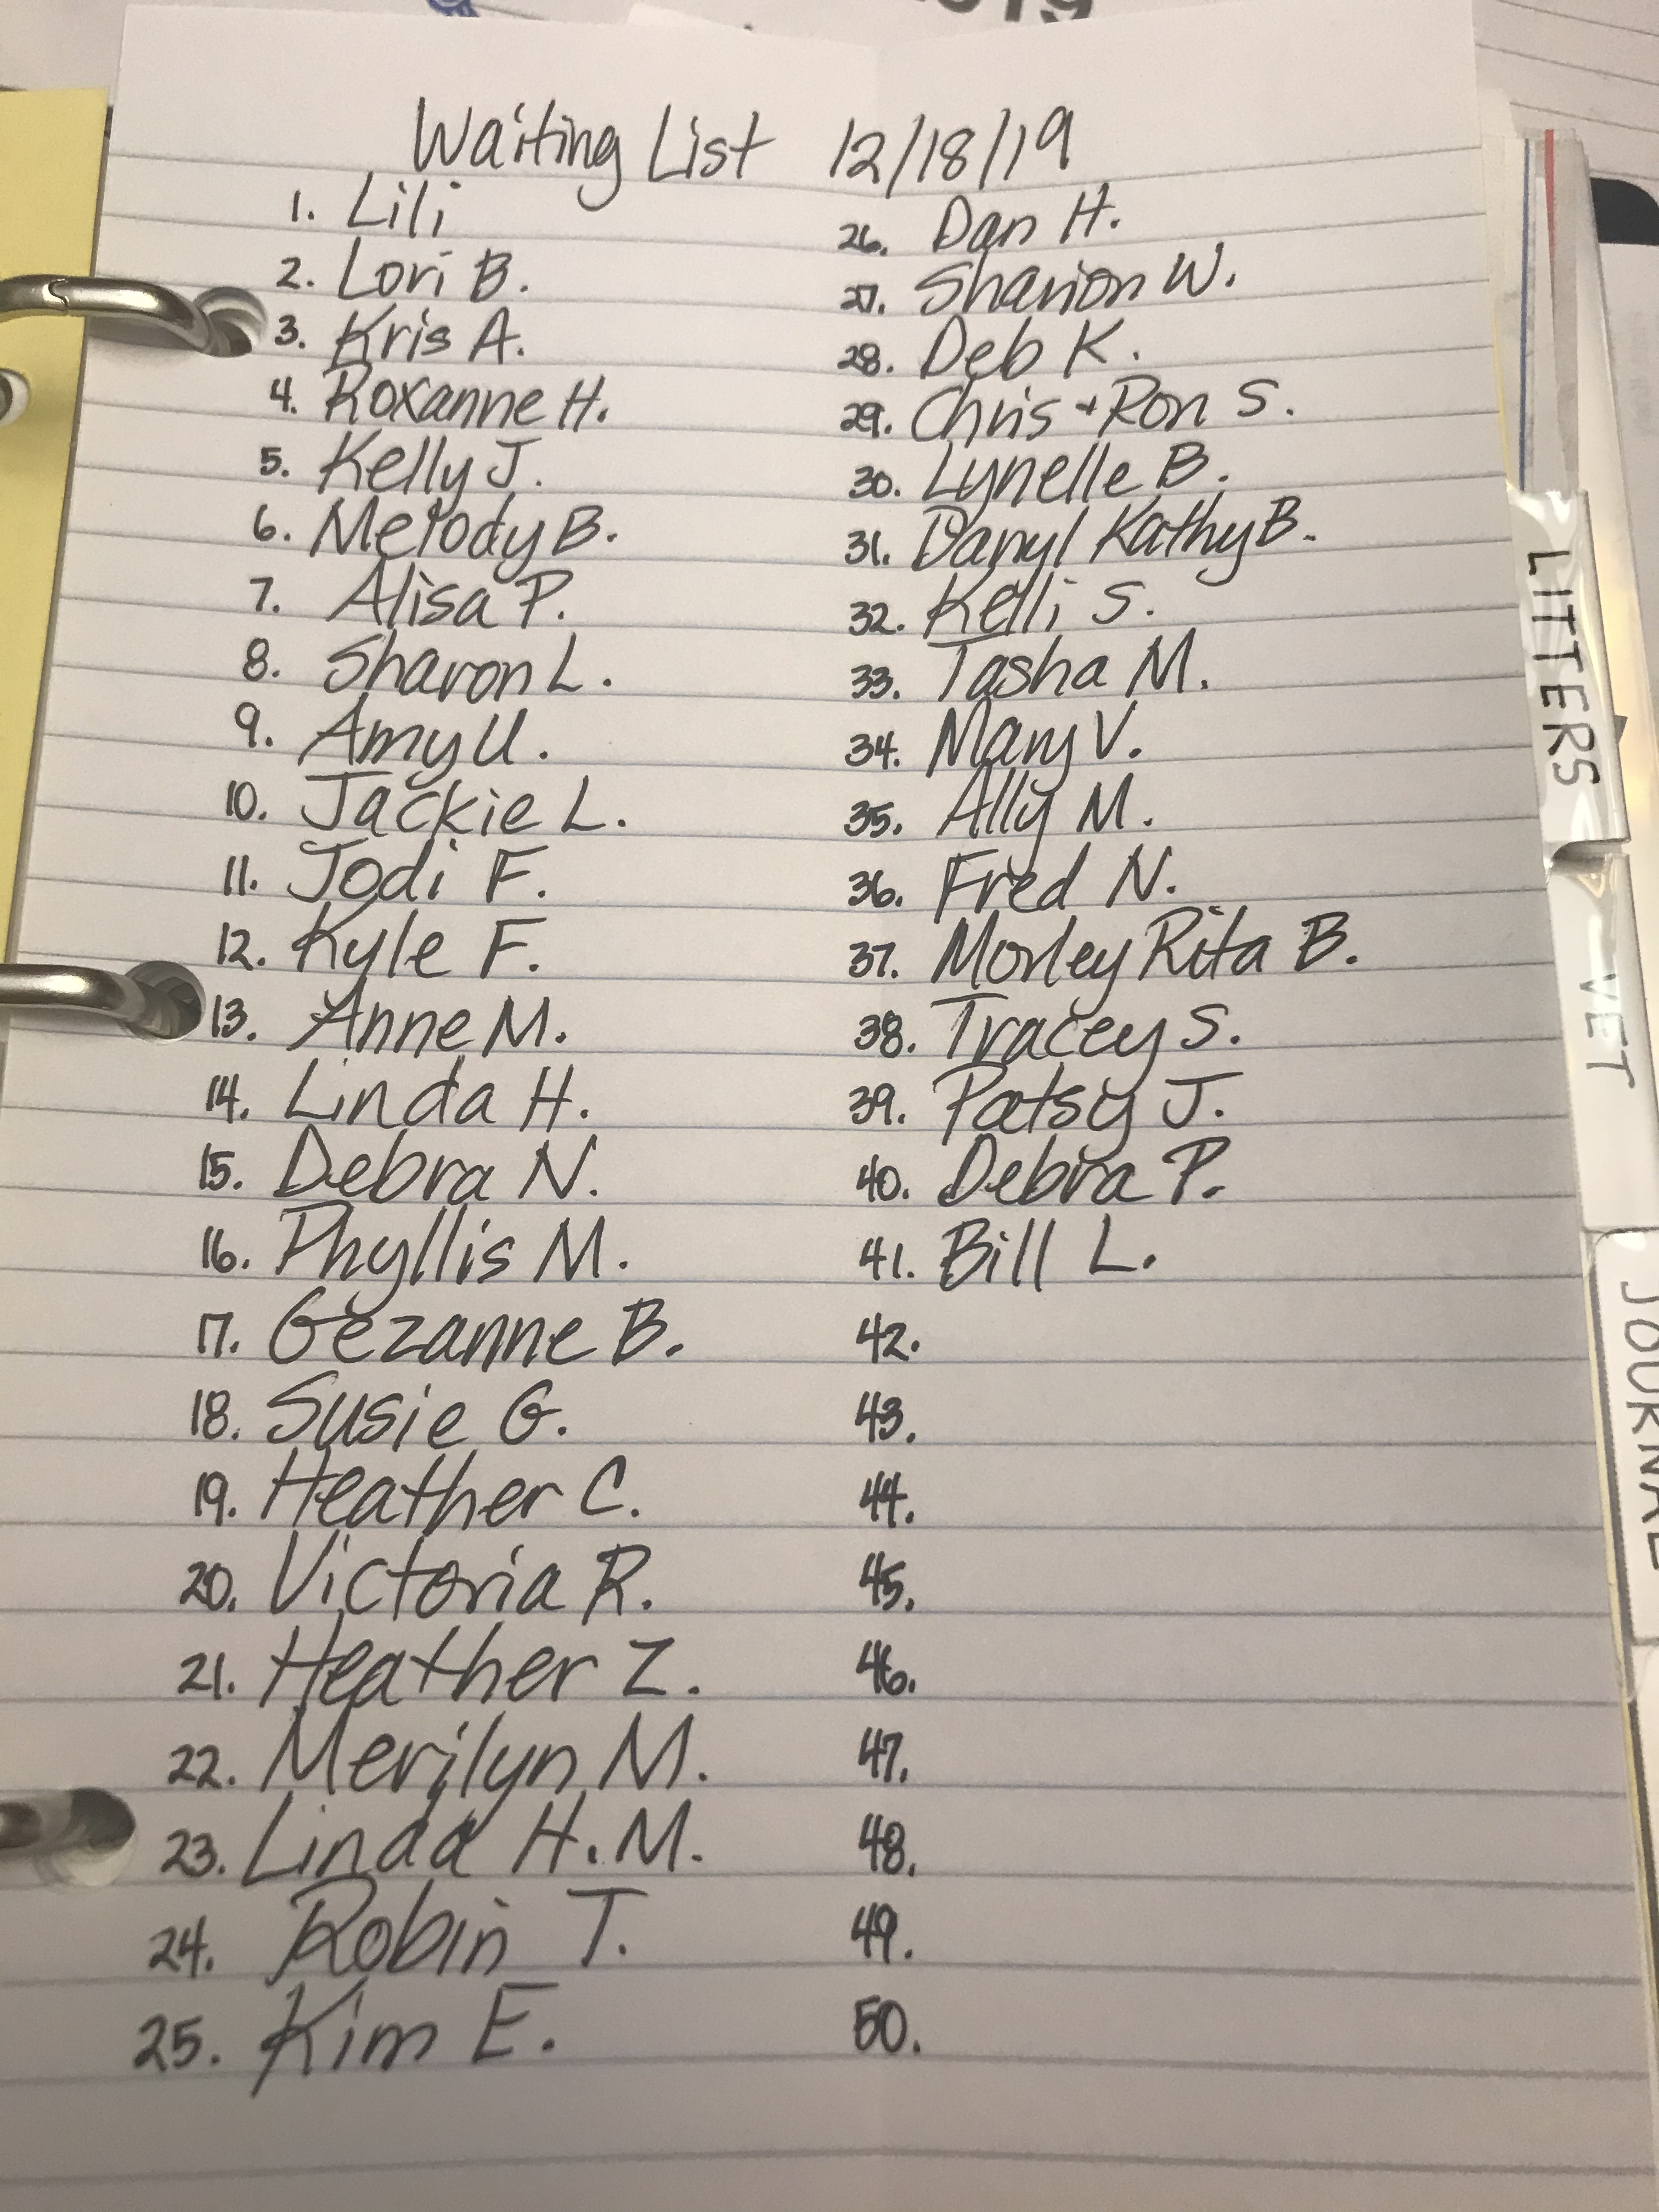 Waiting List 12/18/19
1. Lili
2. Lori B.
3. Kris A.
4. Roxanne H.
5. Kelly J.
6. Melody B.
7. Alisa P.
8. Sharon L.
9. Amy U.
10. Jackie L.
11. Jodi F.
12. Kyle F.
13. Anne M.
14. Linda H.
15. Debra N.
16. Phyllis M.
17. Gezanne B.
18. Susie G.
19. Heather C.
20. Victoria R.
21. Heather Z.
22. Merilyn M.
23. Linda H.M.
24. Robin T.
25. Kim E.
26. Dan H.
27. Sharion W.
28. Deb K.
29. Chris + Ron S.
30. Lynelle B.
31. Daryl Kathy B.
32. Kelli S.
33. Tasha M.
34. Mary V.
35. Ally M.
36. Fred N.
37. Morley Rita B.
38. Tracey S.
39. Patsy J.
40. Debra P.
41. Bill L.
42.
43.
44.
45.
46.
47.
48.
49.
50.
LITTERS
VET
JOURNAL